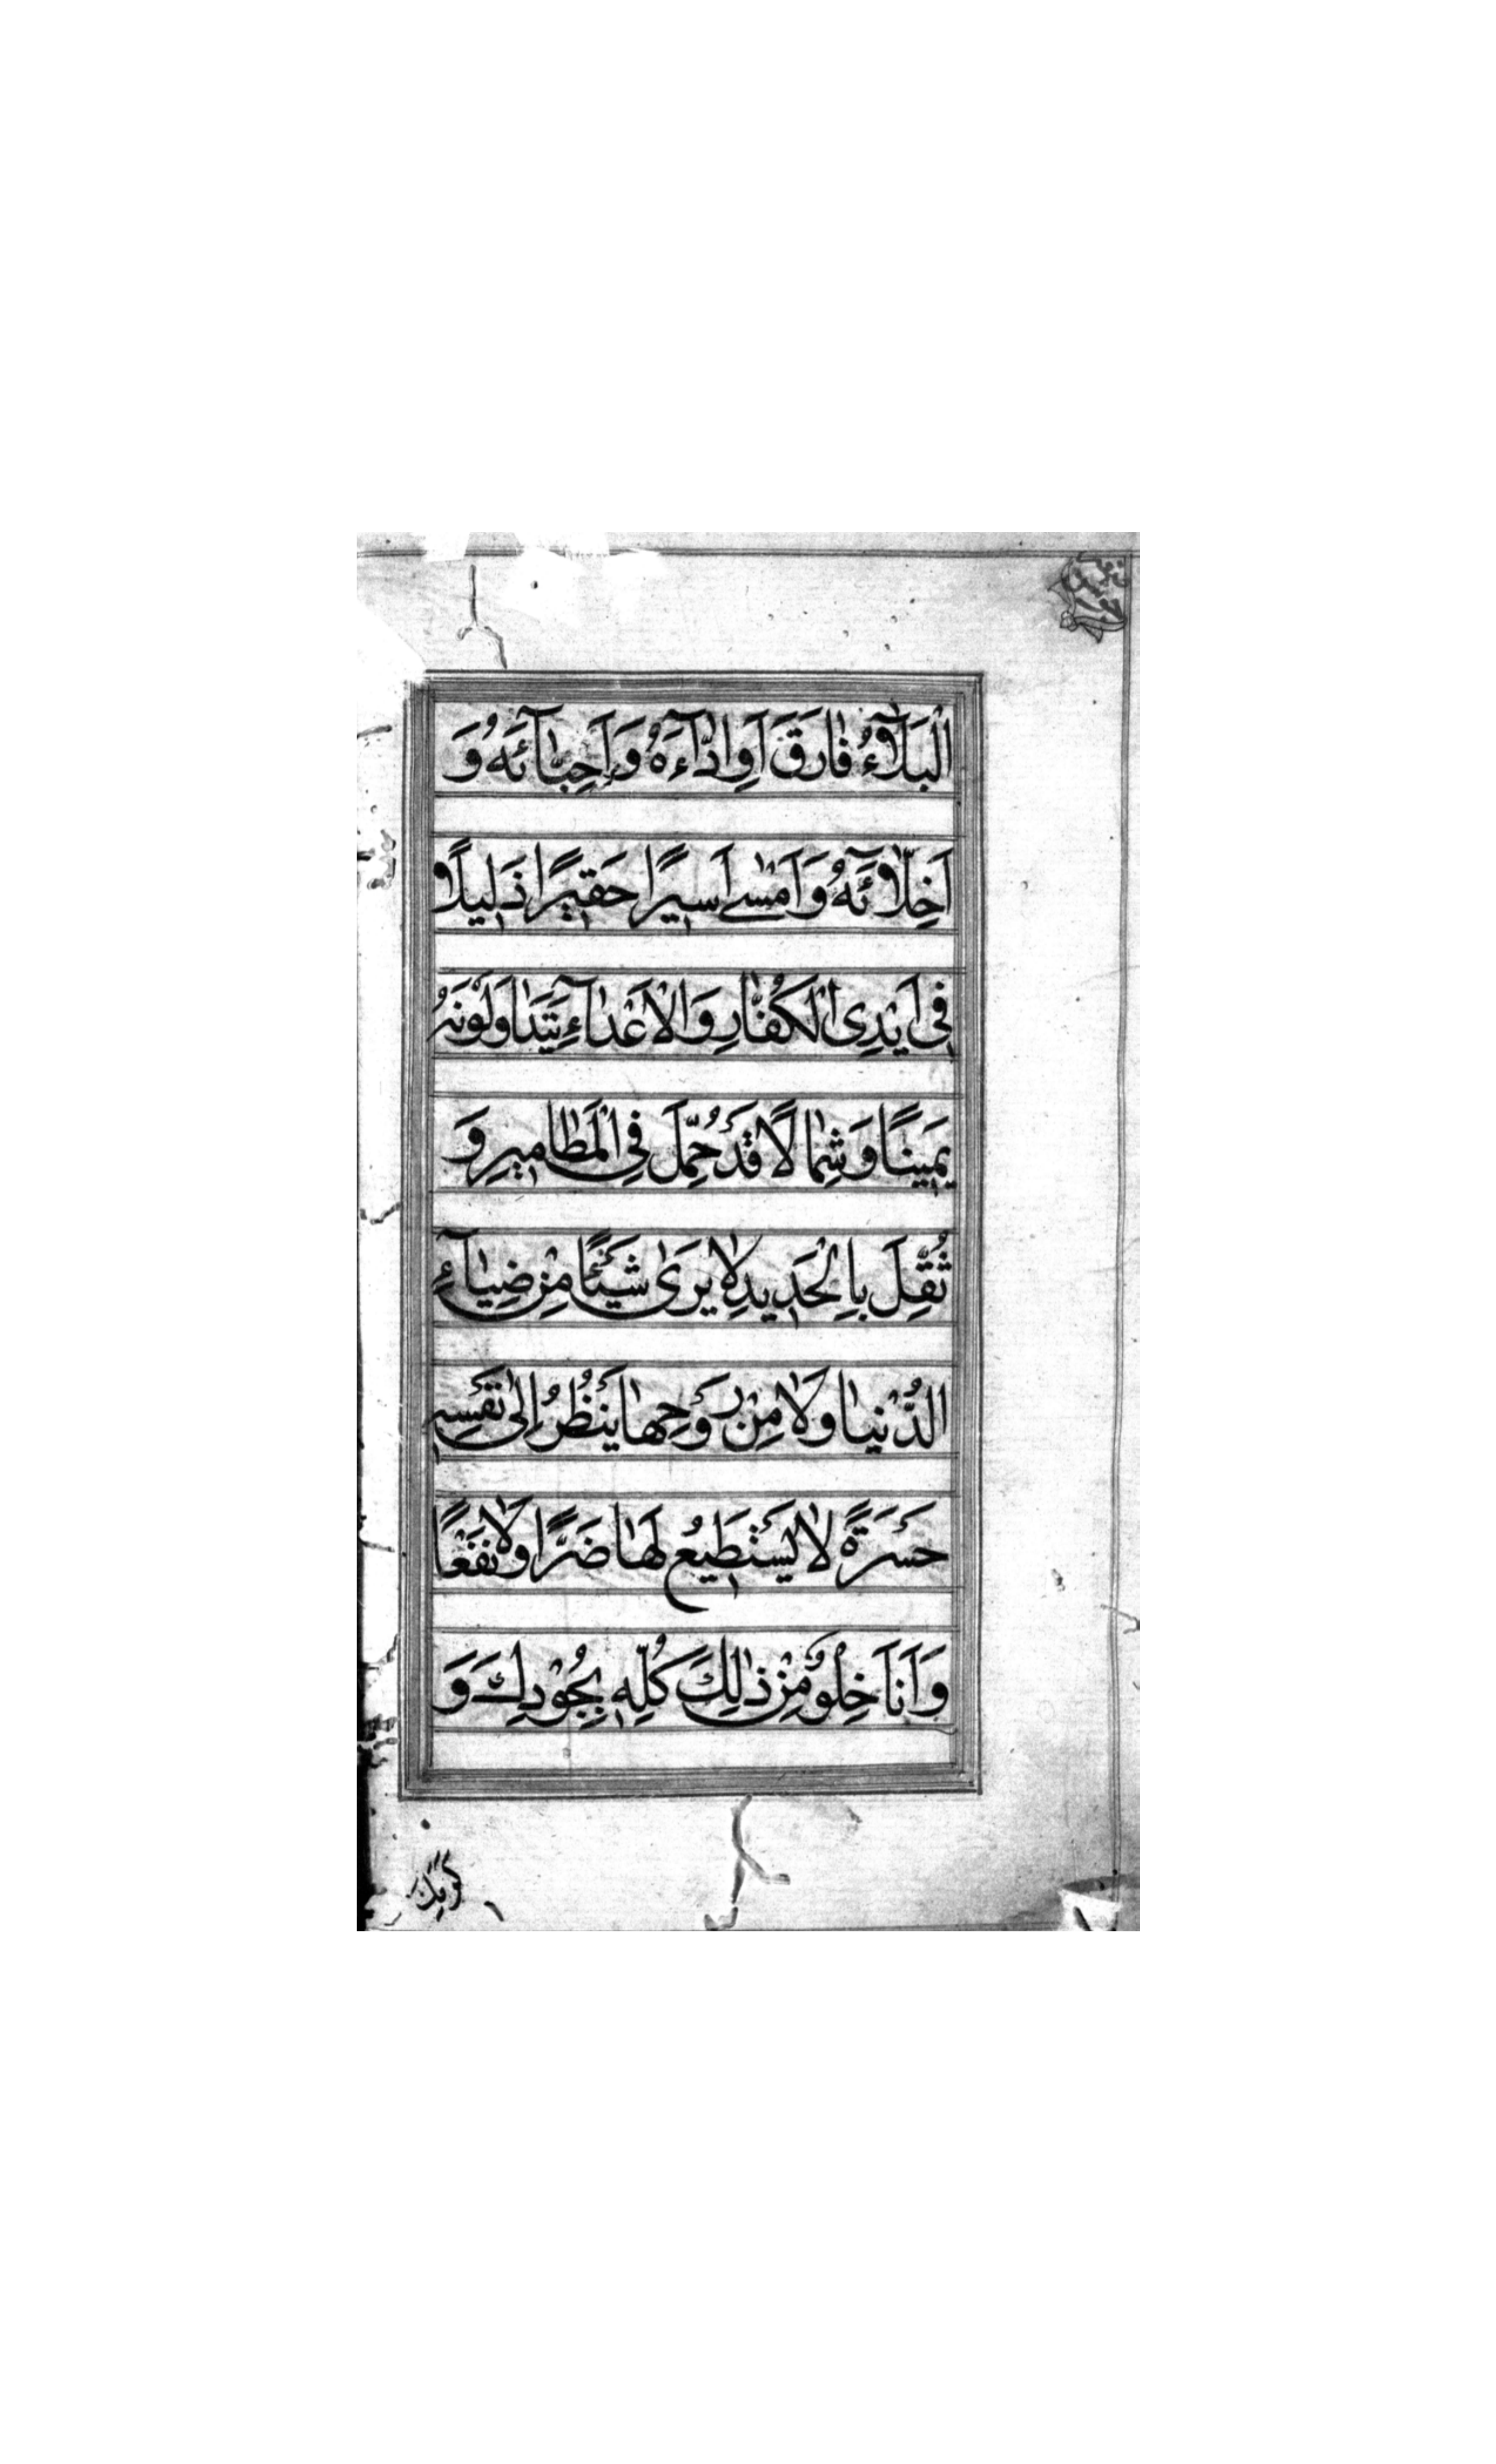 الْبَلَآءُ فَارَقَ اَوِدّٰآءَهُ وَاَحِبّٰآئَهُ وَ
اَخِلّٰآئَهُ وَاَمْسٰى اَسيرًا حَقيرًا ذَليلًا
فى اَيْدِى الْكُفّٰارِ وَالْاَعْدٰآءِ يَتَدٰاوَلُونَهُ
يَمينًا وَشِمٰالًا قَدْ حُمِّلَ فِى الْمَطٰاميرِ وَ
ثُقِّلَ بِالْحَديدِ لٰا يَرٰى شَيْئًا مِنْ ضِيٰآءِ
الدُّنْيٰا وَلٰا مِنْ رَوْحِهٰا يَنْظُرُ اِلٰى نَفْسِهِ
حَسْرَةً لٰا يَسْتَطيعُ لَهٰا ضَرًّا وَلٰا نَفْعًا
وَاَنَا خِلْوٌ مِنْ ذٰلِكَ كُلِّهِ بِجُوْدِكَ وَ
كرمك